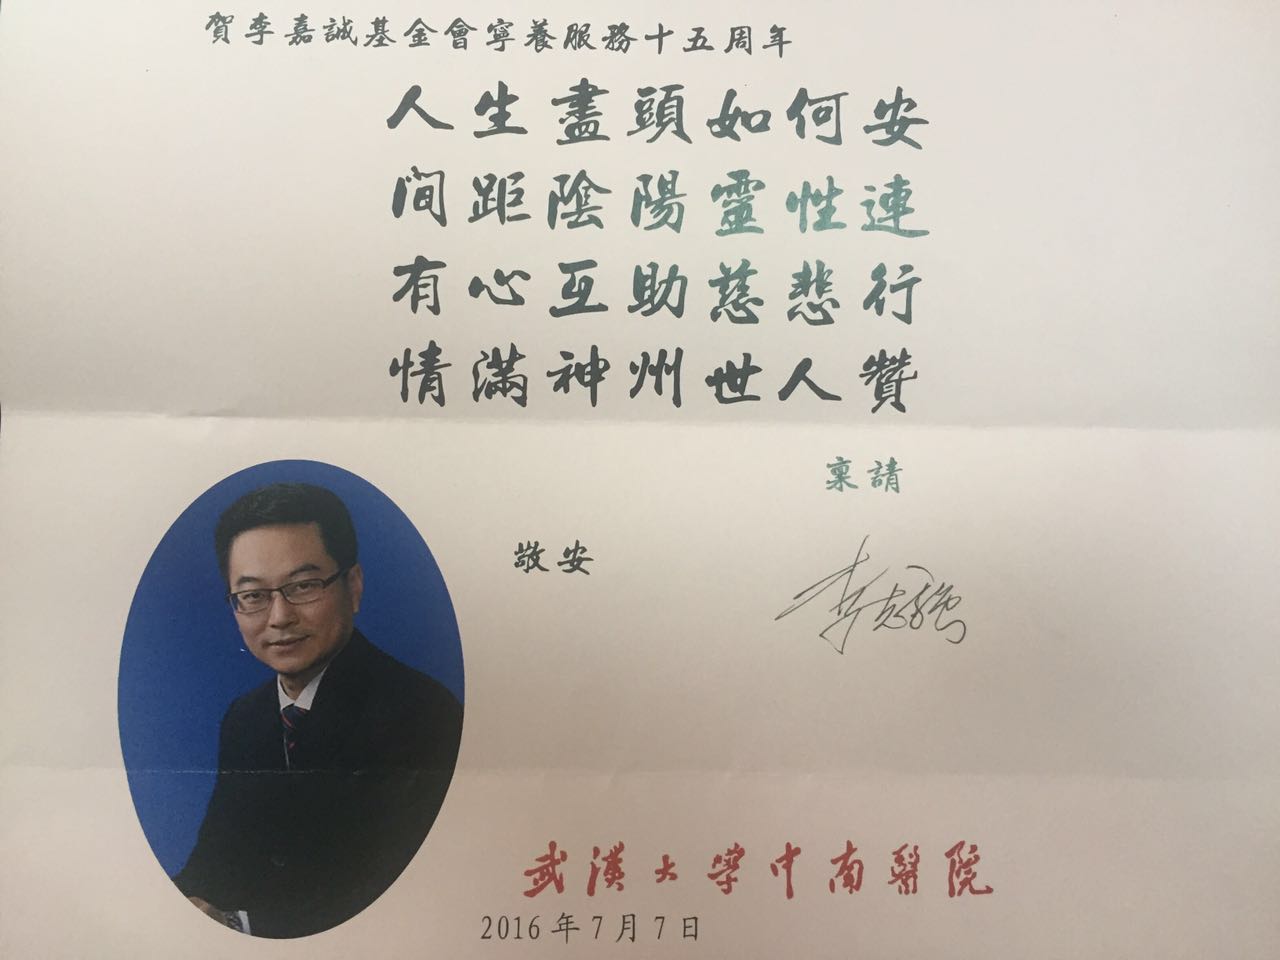 賀李嘉誠基金會寧養服務十五周年
人生盡頭如何安
間距陰陽靈性連
有心互助慈悲行
情滿神州世人贊
稟請
敬安
李志強
武漢大學中南醫院
2016年7月7日